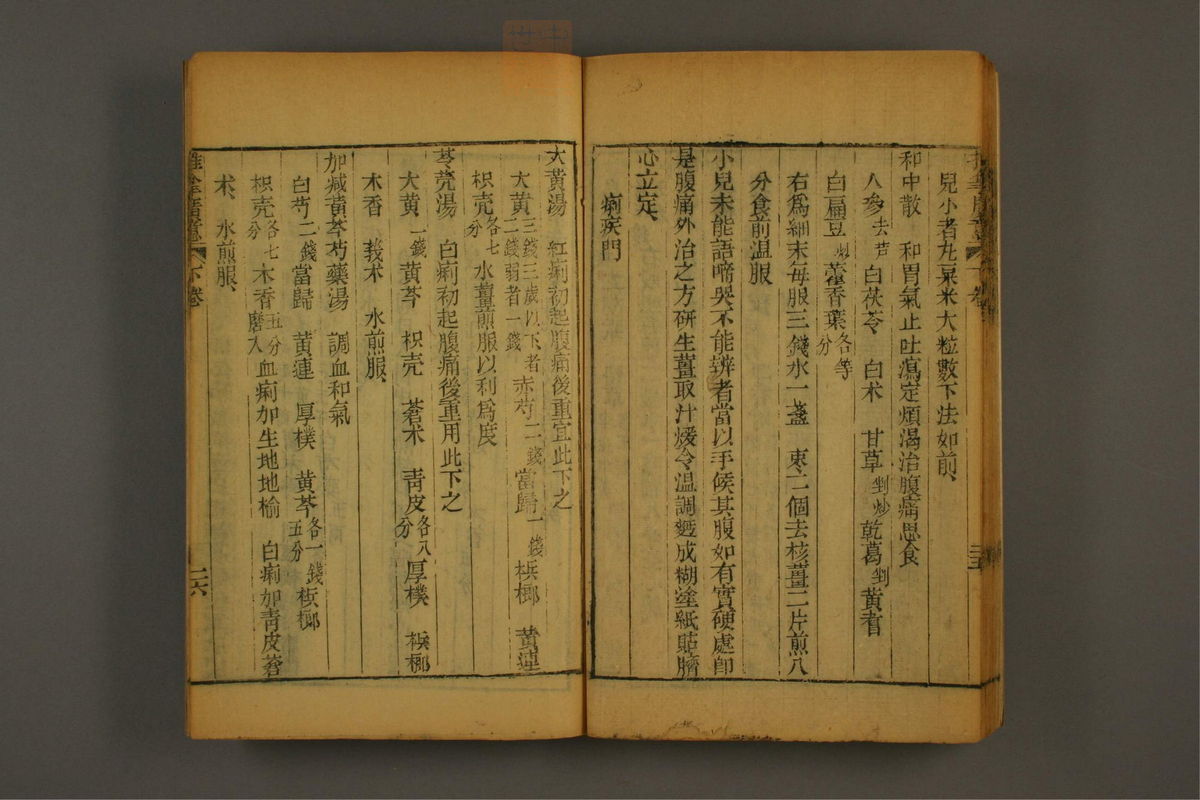 兒小者丸粟米大粒數下法如前、
和中散　和胃氣止吐瀉定煩渴治腹痛思食
人參去芦　白茯苓　白朮　甘草剉炒　乾葛剉　黄耆
白扁豆炒　藿香葉各等分
右爲細末每服三錢水一盞　棗二個去核薑二片煎八
分食前温服
小兒未能語啼哭不能辨者當以手候其腹如有實硬處即
是腹痛外治之方研生薑取汁煖令温調麪成糊塗紙貼臍
心立定、
痢疾門
大黄湯　紅痢初起腹痛後重宜此下之
大黄三錢三歲以下者二錢弱者一錢　赤芍二錢　當歸一錢　梹榔　黄連
枳壳各七分　水薑煎服以利爲度
芩莞湯　白痢初起腹痛後重用此下之
大黄一錢　黄芩　枳壳　蒼朮　青皮各八分　厚樸　梹榔
木香　莪朮　水煎服、
加减黄芩芍藥湯　調血和氣
白芍二錢　當歸　黄連　厚樸　黄芩各一錢五分　梹榔
枳壳各七分　木香五分磨入　血痢加生地地榆　白痢加青皮蒼
朮、水煎服、
下卷　二六